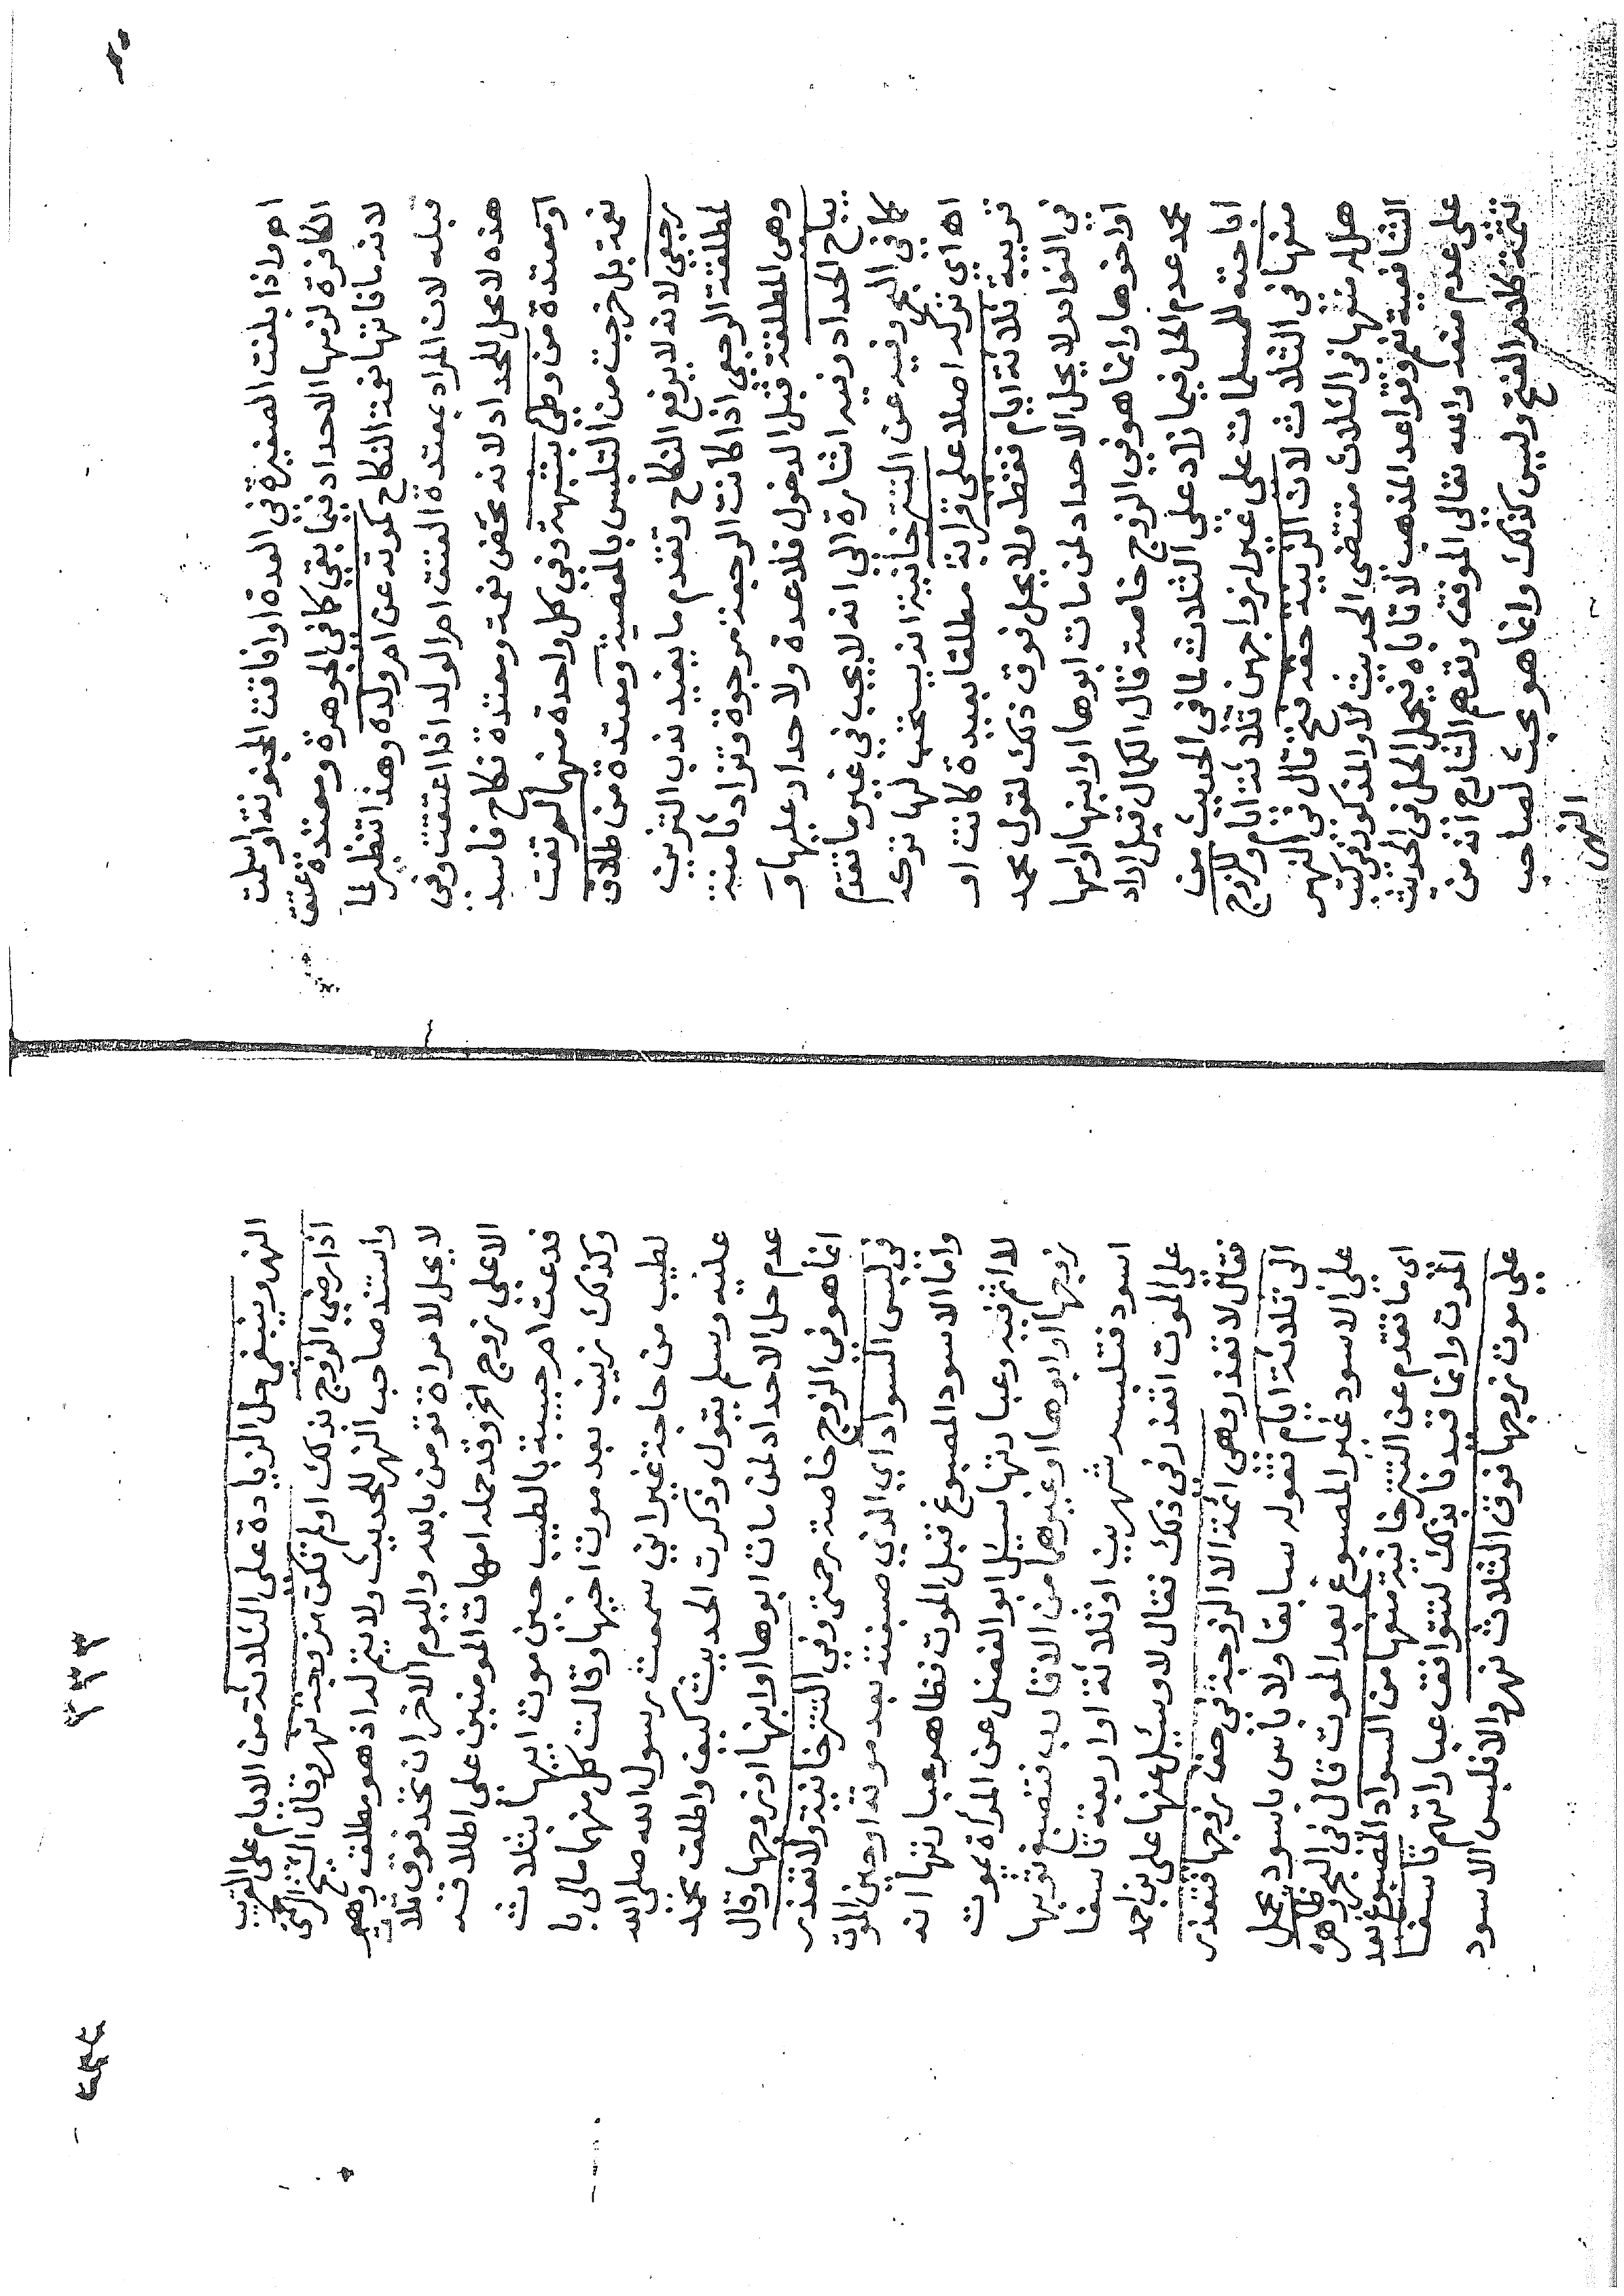 اه واذا بلغت الصغيرة في العدة او افاقت المجنونة او اسلمت
الكافرة لزمها الاحداد فيما بقي كما في الجوهرة ومعتدة عتق
لانه ما فاتها نعمة النكاح كموته عن ام ولده وهذا تنظير لما
قبله لان المراد بمعتدة العتق ام الولد اذا اعتقت وفي
هذه لا يحل للحداد لانه محض نعمة ومعتدة نكاح فاسد
او معتدة من وطئ بشبهة وفي كل واحدة منهما لم تفت
نعمة بل خرجت من التلبس بالمعصية ومعتدة من طلاق
رجعي لانه لا يرفع النكاح وتقدم ما يفيد ندب التزين
لمطلقة الرجعي اذا كانت الرجعة مرجوة وتزاد ثامنة
وهي المطلقة قبل الدخول فلا عدة ولا حداد عليها و
يباح الحداد وفيه اشارة الى انه لا يجب في غير ما تقدم
كما في البحر وفيه عن التترخانية انه يستحب لها تركه
اه اي تركه اصلا على قرابة مطلقا بعيدة كانت او
قريبة ثلاثة ايام فقط ولا يحل فوق ذلك لقول محمد
في النوادر لا يحل الاحداد لمن مات ابوها او ابنها او امها
او اخوها وانما هو في الزوج خاصة قال الكمال قيل اراد
محمد عدم الحل فيما زاد على الثلاث لما في الحديث من
اباحته للمسلمات على غير ازواجهن ثلاثة ايام وللزوج
منعها في الثلاث لان الزينة حقه فتح قال في النهر
هل له منعها في الثلاث مقتضى الحديث لا والمذكور في كتب
الشافعية نعم وقواعد المذهب لا تاباه فيحمل الحل في الحديث
على عدم منعه والله تعالى الموفق وتقدم الشارح انه من
تتمة كلام الفتح وليس كذلك وانما هو بحث لصاحب
النهر
النهر وينبغي حل الزيادة على الثلاثة من الايام على القريب
اذا رضي الزوج بذلك او لم تكن مزوجة نهر وقال الشيخ الرحمتي
واستند صاحب النهر للحديث ولا يتم له اذ هو مطلق وهو
لا يحل لامراة تومن بالله واليوم الاخر ان تحد فوق ثلاث
الا على زوج اخر وقد حمله امهات المومنين على اطلاقه
فدعت ام حبيبة بالطيب حين موت ابيها بثلاث
وكذلك زينب بعد موت اخيها وقالت كل منهما مالي با
لطيب من حاجة غير اني سمعت رسول الله صلى الله
عليه وسلم يقول وذكرت الحديث كيف واطلق محمد
عدم حل الاحداد لمن مات ابوها او ابنها او زوجها وقال
انما هو في الزوج خاصة رحمتي وفي التترخانية ولا تعذر
في لبس السواد اي الذي صبغته بعد موته او حين الموت
واما الاسود المصبوغ قبل الموت فظاهر عبارتها انه
لا اثم فيه وعبارتها سيئل ابو الفضل عن المرأة يموت
زوجها او ابوها او غيرهما من الاقارب فتصبغ ثوبها
اسود فتلبسه شهرين او ثلاثة او اربعة تأسفا
على الموت اتعذر في ذلك فقال لا وسيئل عنها علي بن احمد
فقال لا تعذر وهي اثمة الا الزوجة في حق زوجها فتعذر
الى ثلاثة ايام فقوله سابقا ولا بأس باسود يحمل
على الاسود غير المصبوغ بعد الموت قال في البحر وظاهره
اى ما تقدم عن التترخانية منعها من السواد المصبوغ بعد
الموت وانما قيدنا بذلك لتتوافق عباراتهم تأسفا
على موت زوجها فوق الثلاث نهر والا فلبس الاسود